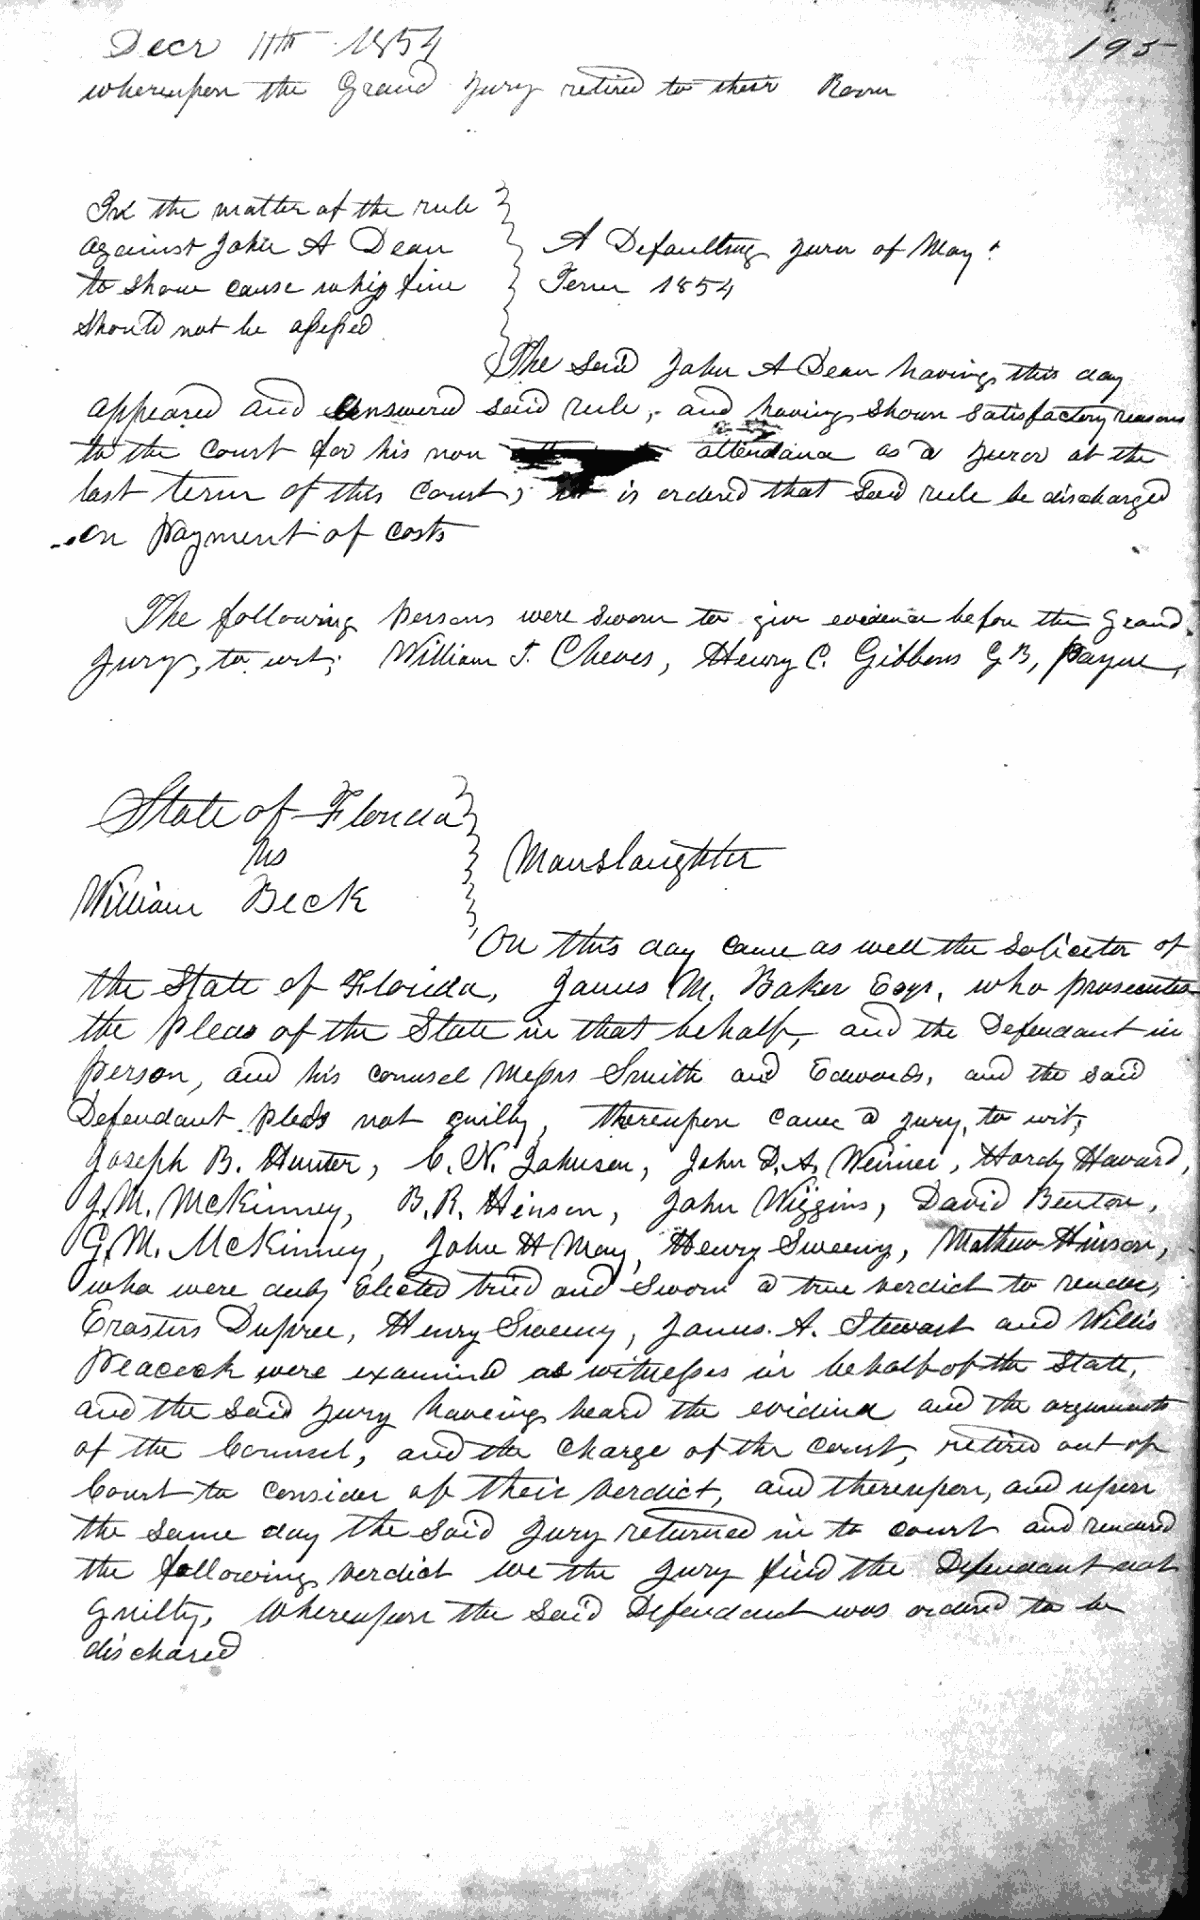 Decr 11th 1854
195
whereupon the Grand Jury retired to their Room
In the matter of the rule
against John A Dean
to show cause why fine
should not be assessed
A Defaulting juror of May
Term 1854
The said John A Dean having this day
appeared and answered said rule, and having shown satisfactory reasons
to the court for his non attendance as a juror at the
last term of this court, it is ordered that said rule be discharged
on payment of costs
The following persons were sworn to give evidence before the Grand
Jury, to wit; William J. Cheves, Henry C. Gibbons G B, Payne,
State of Florida
vs
William Beck
Manslaughter
On this day came as well the Solicitor of
the State of Florida, James M. Baker Esqr, who prosecutes
the pleas of the State in that behalf, and the Defendant in
person, and his counsel Messrs Smith and Edwards, and the said
Defendant pleds not guilty, thereupon came a jury, to wit;
Joseph B. Hunter, C. N. Johnson, John D. A. Weiner, Hardy Havard,
J. M. McKinney, B. R. Hinson, John Wiggins, David Benton,
G. M. McKinney, John H May, Henry Sweeny, Mathew Hinson,
who were duly Elected tried and Sworn a true verdict to render,
Erastus Dupree, Henry Sweeny, James. A. Stewart and Willis
Peacock were examined as witnesses in behalf of the State,
and the said jury haveing heard the evidence and the arguments
of the Counsel, and the charge of the court, retired out of
Court to consider of their verdict, and thereupon, and upon
the same day the said jury returned in to court and rendered
the following verdict we the jury find the Defendant not
guilty, Whereupon the said Defendant was ordered to be
dischared